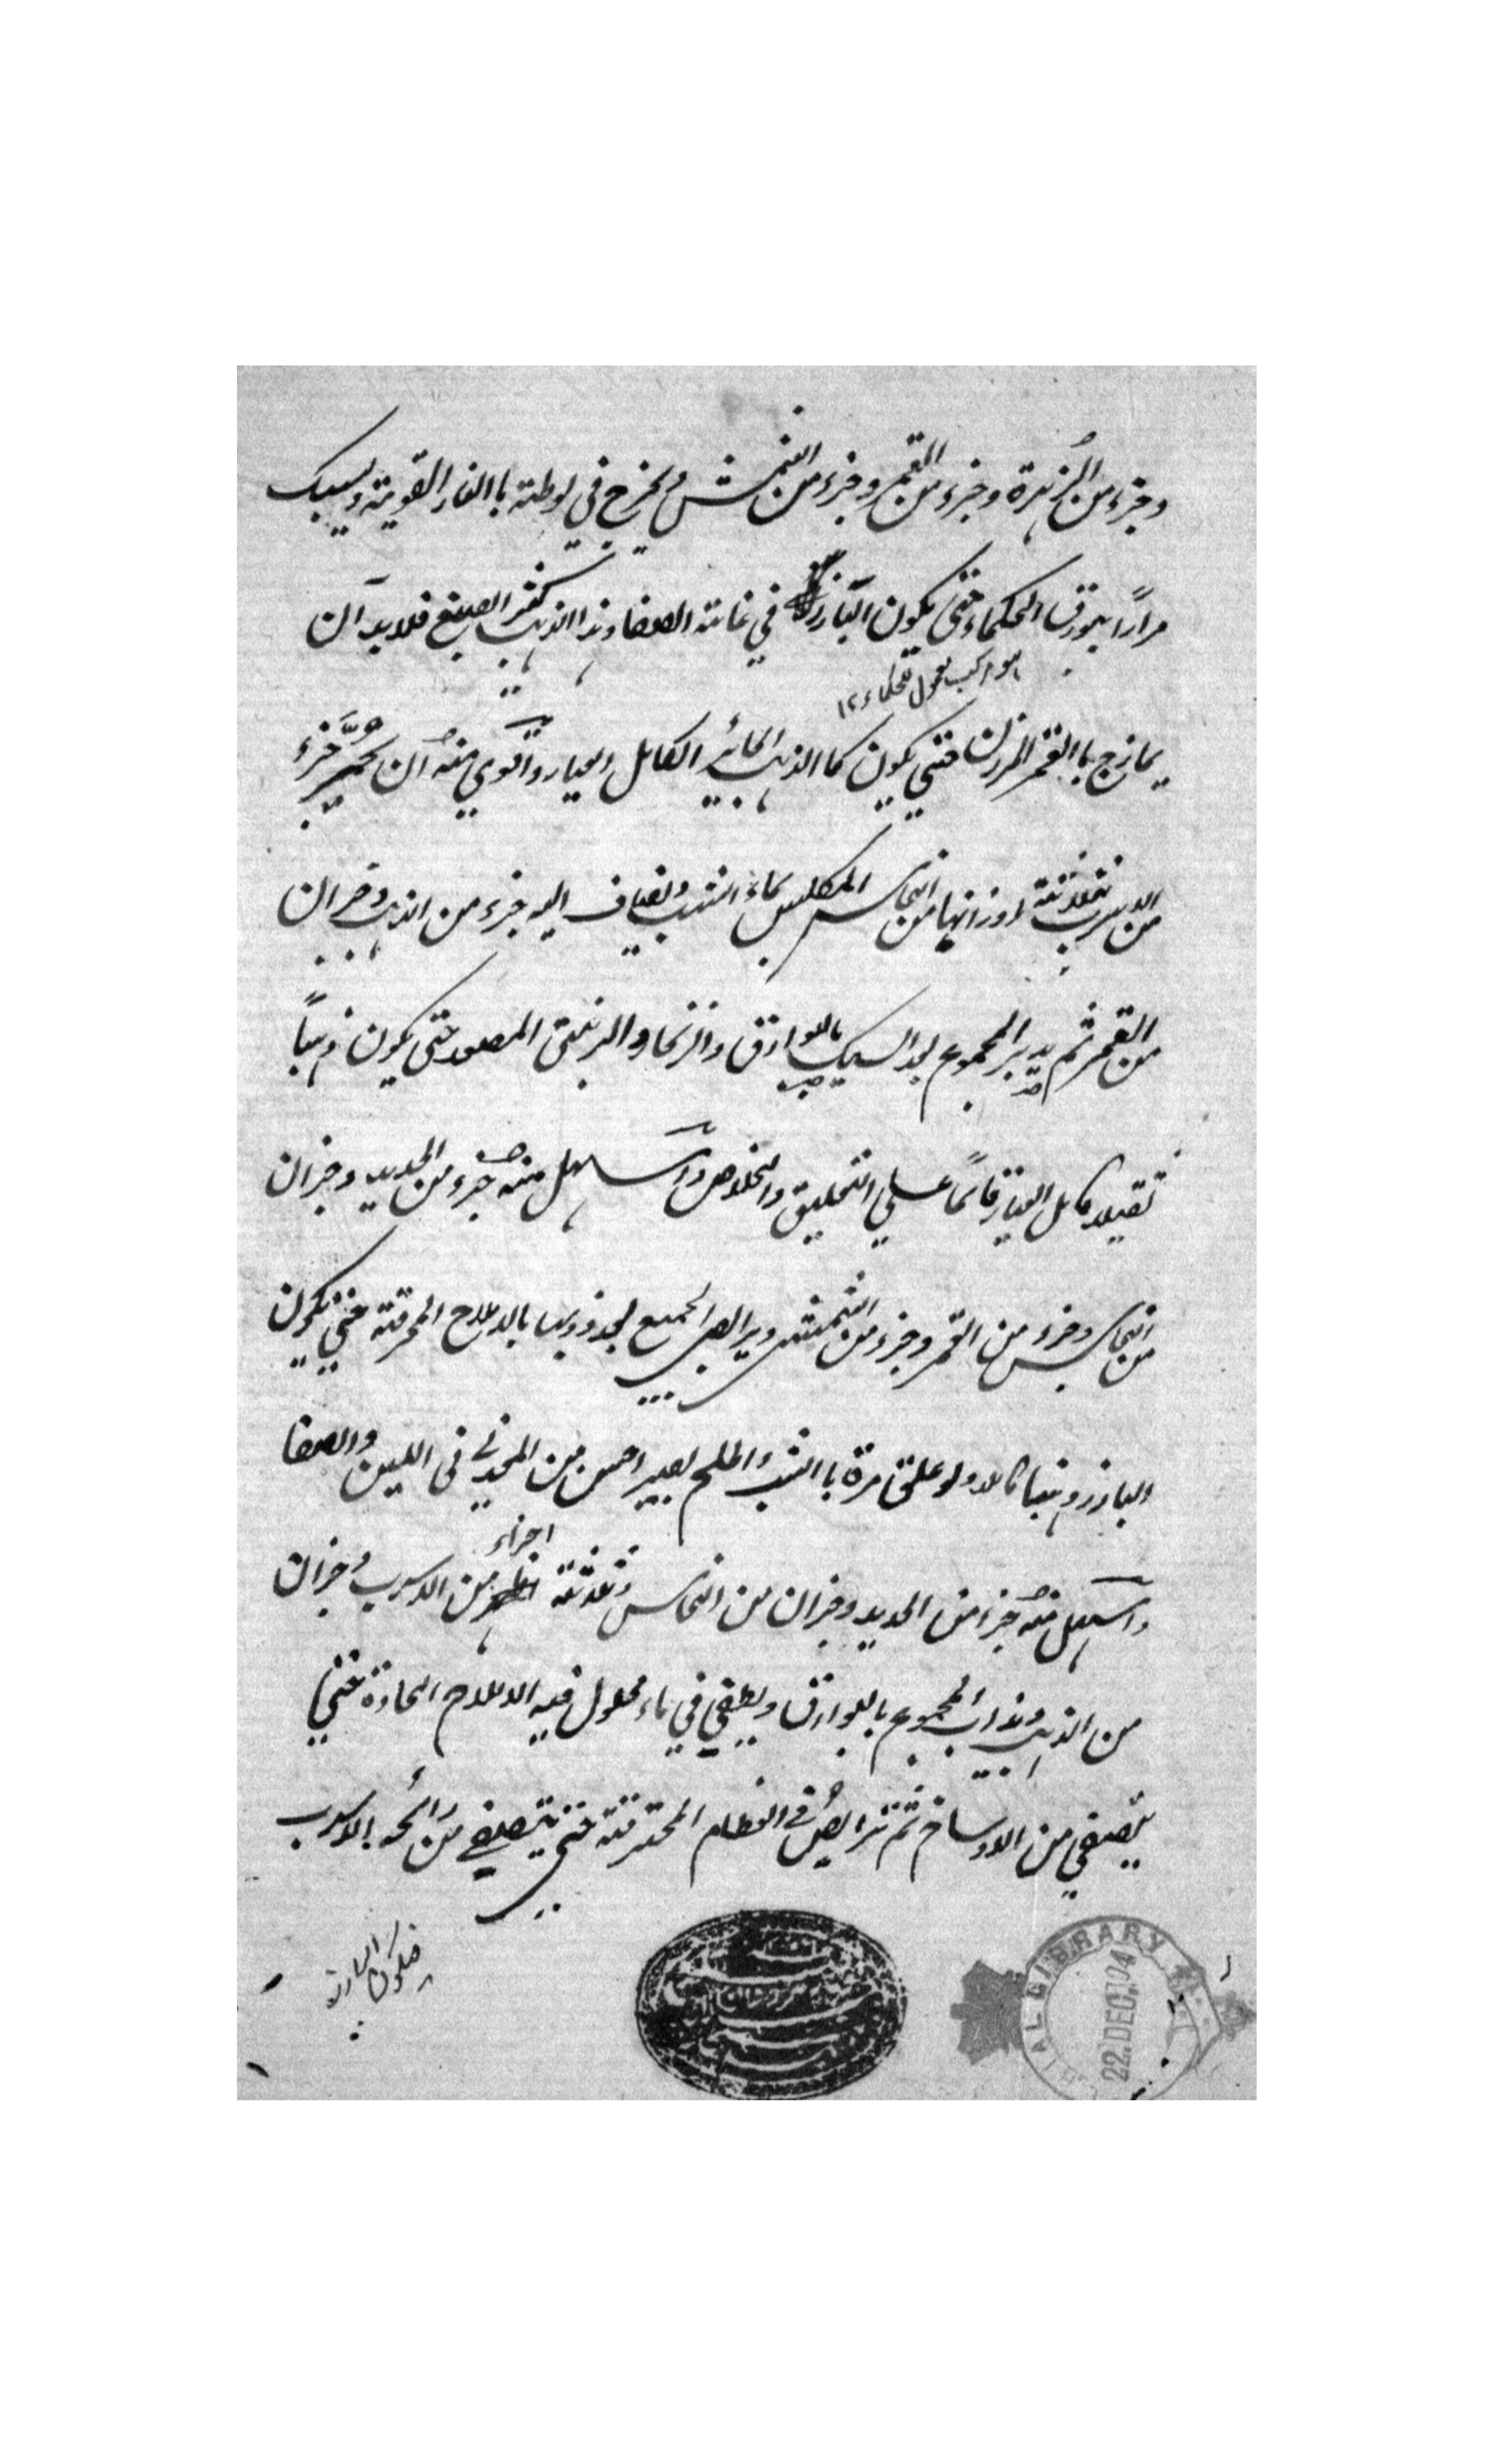 وجزء من الزهرة وجزء من القمر وجزء من الشمس ويخرج في بوطة با النار القوية ويسبك
مرارًا ببورق الحكماء حتى يكون البارز في غاية الصفا وهذا الذهب كثير الصبغ فلا بد آن
هو مركب معمول للحكماء ١٢
يمازج با القمر المرزن حتي يكون كما الذهب الجائز الكامل العيار وآقوي منه ان يحمر جزء
من الاسرب بثلاثة اوزانها من النحاس المكلس بماء الشب ويضاف اليه جزء من الذهب وجزان
من القمر ثم يدبر المجموع بعد السبك بالبوارق والزنجار والزيبق المصعد حتى يكون ذهباً
ثقيلا كامل العيار قائماً علي التعليق والخلاص وآسهل منه جزء من الحديد وجزان
من النحاس وجزء من القمر وجزء من الشمس ويرابص الجميع بعد ذوبها بالاملاح المحرقة حتي يكون
البارز ذهبا كاملا ولو علق مرة با الشب والملح يصير احسن من المعدني في اللين والصفا
واسهل منه جزء من الحديد وجزان من النحاس وثلاثة اجزاء من الاسرب وجزان
من الذهب ويذاب المجموع بالبوارق ويطفي في ماء محلول فيه الاملاح الحادة حتي
يتصفي من الاوساخ ثم ترابص في العظام المحترقة حتي يتصفي من رائحه الاسرب
فيكون البارز
LIBRARY
22.DEC.1904